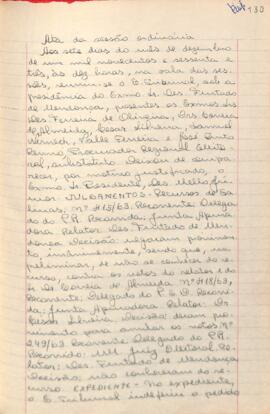 130
Ata da sessão ordinária
Aos sete dias do mês de dezembro
de um mil novecentos e sessenta e
três, às dez horas, na sala das ses-
sões, reuniu-se o E. Tribunal, sob a
presidência do Exmo. Sr. Des. Furtado
de Mendonça, presentes os Exmos. Srs.
Des. Ferreira de Oliveira, Drs. Correia
de Almeida, Cesar Silveira, Samuel
Werneck, Valle Ferreira e José Pinto
Renno, Procurador Regional Eleito-
ral, substituto. Deixou de compa-
recer, por motivo justificado, o
Exmo. Sr. Presidente, Des. Mello Jú-
nior. JULGAMENTOS - Recursos de
nº 415/63. Recorrente: Delegado
do P.R. Recorrida: Junta Apura-
dora. Relator: Des. Furtado de Men-
donça. Decisão: negaram provimen-
to, unânimemente, sendo que, na
preliminar, de não se conhecer do re-
curso, contra os votos do relator e do
Dr. Correia de Almeida. Nº 418/63.
Recorrente: Delegado do P.S.D. Recorri-
da: Junta Apuradora. Relator: Dr.
Cesar Silveira. Decisão: deram pro-
vimento para anular os votos. Nº
249/63. Recorrente: Delegado do P.R.
Recorrido: MM. Juiz Eleitoral. Re-
lator: Des. Furtado de Mendonça.
Decisão: não conheceram do re-
curso. EXPEDIENTE - No expediente,
o E. Tribunal indeferiu o pedido